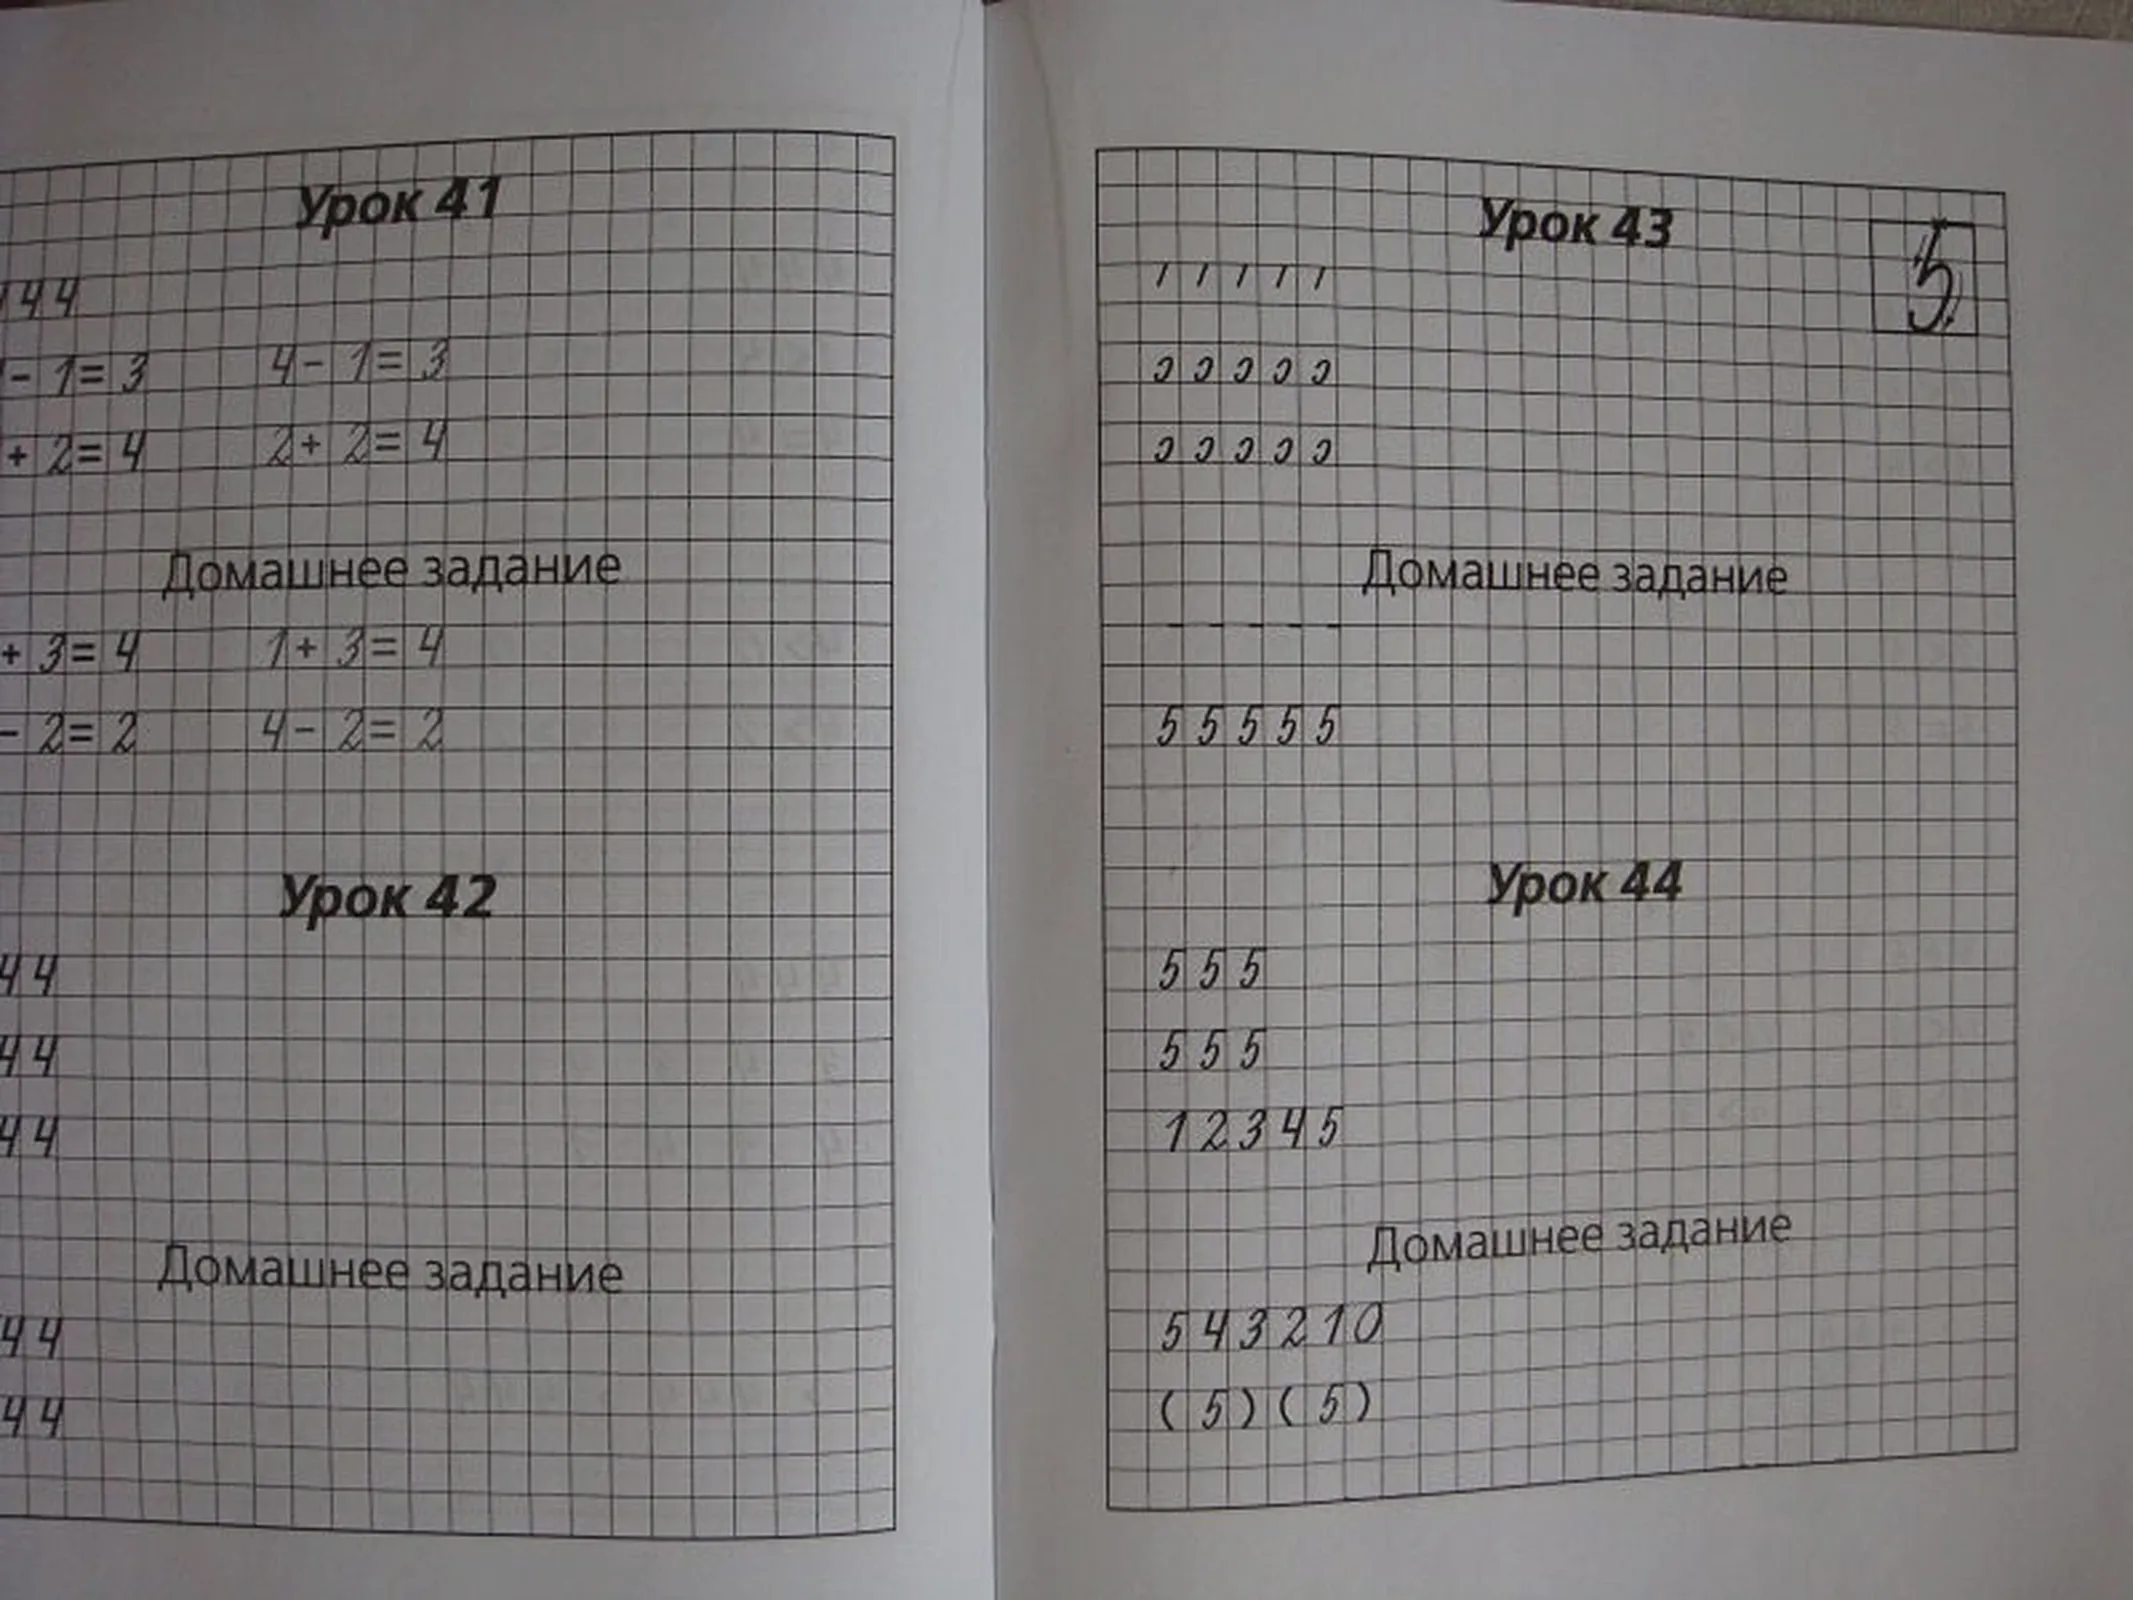 Урок 41
44
- 1 = 3 4 - 1 = 3
+ 2 = 4 2 + 2 = 4
Домашнее задание
+ 3 = 4 1 + 3 = 4
- 2 = 2 4 - 2 = 2
Урок 42
44
44
44
Домашнее задание
44
44
Урок 43
5
Домашнее задание
- - - - -
5 5 5 5 5
Урок 44
5 5 5
5 5 5
1 2 3 4 5
Домашнее задание
5 4 3 2 1 0
( 5 ) ( 5 )